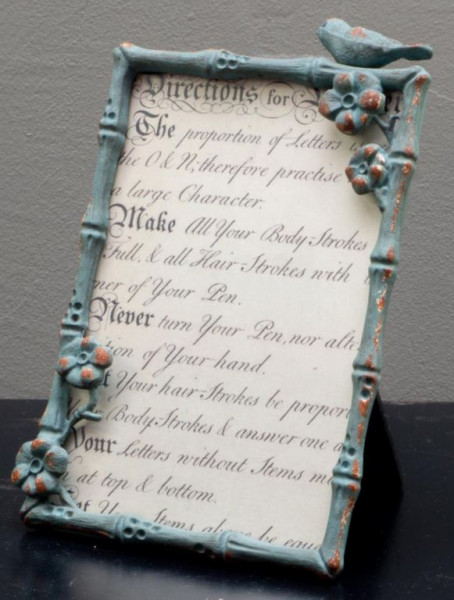 Directions for
The proportion of Letters
the O & N; therefore practise
a large Character.
Make All Your Body-Strokes
Full, & all Hair-Strokes with
ner of Your Pen.
Never turn Your Pen, nor alte
tion of Your hand.
Your hair-Strokes be propor
Body-Strokes & answer one a
Your Letters without Items m
at top & bottom.
Items above be equa